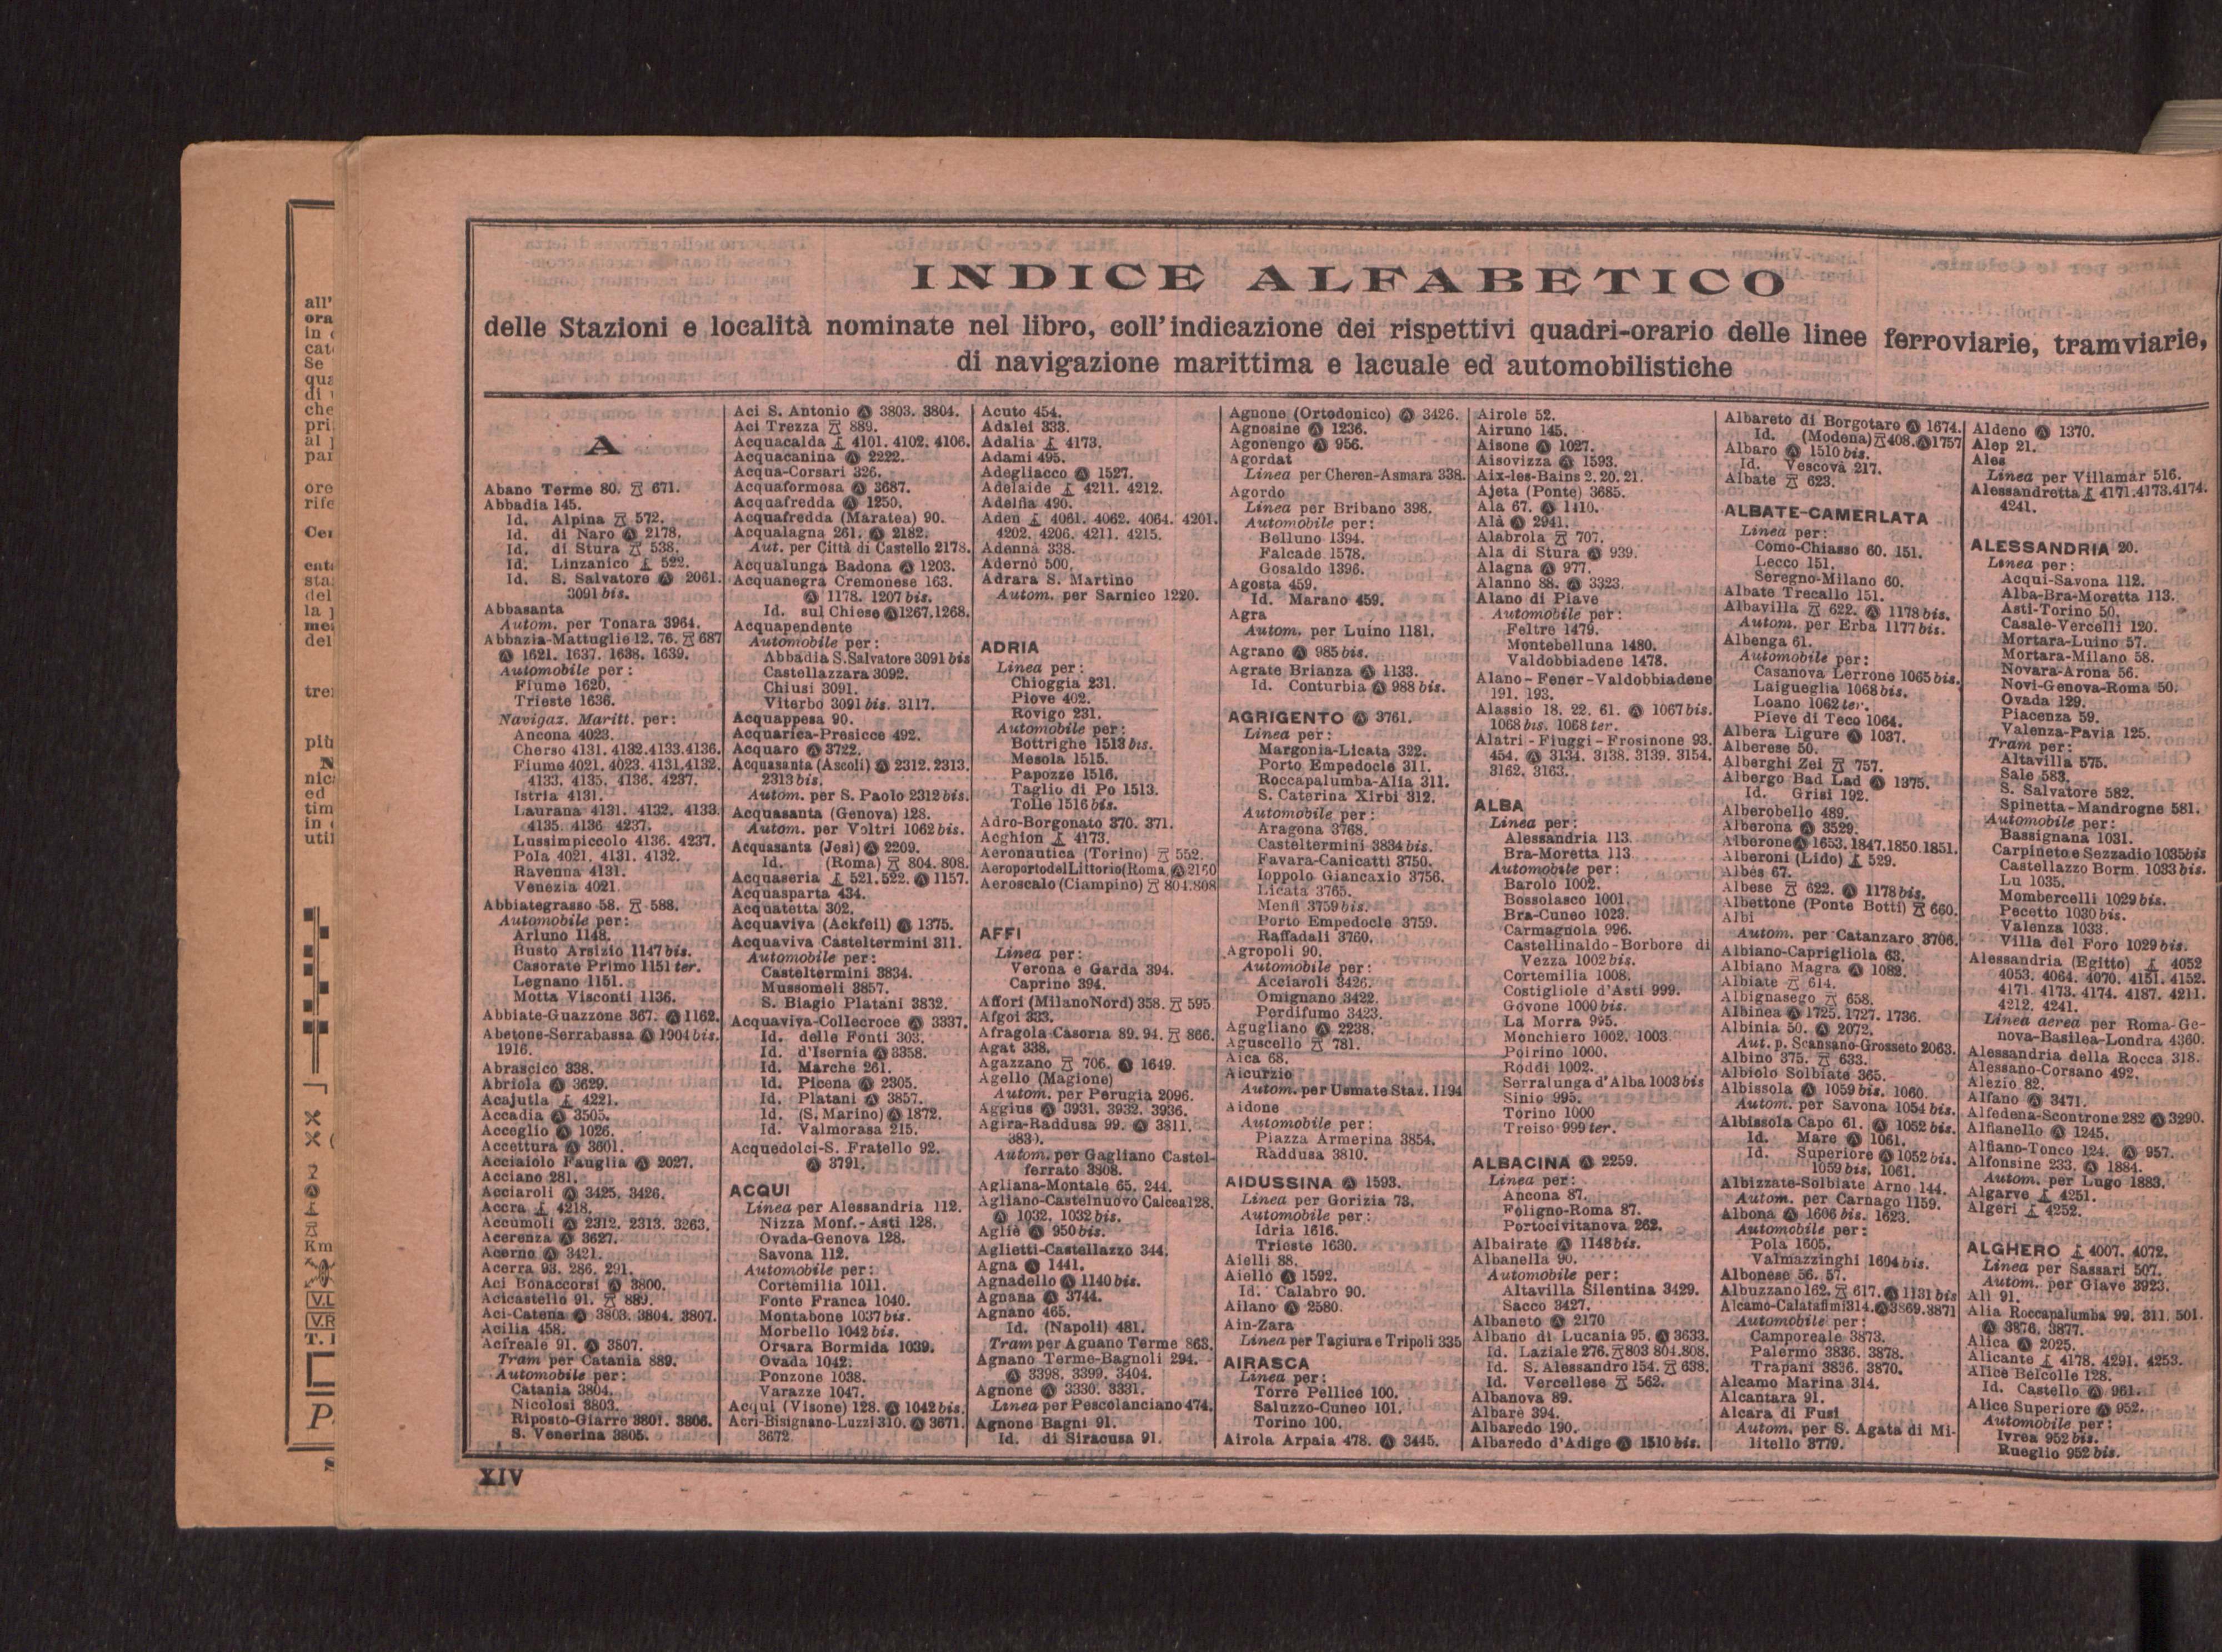 INDICE ALFABETICO
delle Stazioni e località nominate nel libro, coll'indicazione dei rispettivi quadri-orario delle linee ferroviarie, tramviarie,
di navigazione marittima e lacuale ed automobilistiche
A
Abano Terme 80. 671.
Abbadia 145.
Id. Alpina 572.
Id. di Naro Ⓐ 2178.
Id. di Stura 538.
Id. Linzanico 522.
Id. S. Salvatore Ⓐ 2061.
3091 bis.
Abbasanta
Autom. per Tonara 3964.
Abbazia-Mattuglie 12. 76. 687
Ⓐ 1621. 1637. 1638. 1639.
Automobile per:
Fiume 1620.
Trieste 1636.
Navigaz. Maritt. per:
Ancona 4023.
Cherso 4131. 4132. 4133. 4136.
Fiume 4021. 4023. 4131. 4132.
4133. 4135. 4136. 4237.
Istria 4131.
Laurana 4131. 4132. 4133.
4135. 4136 4237.
Lussimpiccolo 4136. 4237.
Pola 4021. 4131. 4132.
Ravenna 4131.
Venezia 4021.
Abbiategrasso 58. 588.
Automobile per:
Arluno 1148.
Busto Arsizio 1147 bis.
Casorate Primo 1151 ter.
Legnano 1151.
Motta Visconti 1136.
Abbiate-Guazzone 367. Ⓐ 1162.
Abetone-Serrabassa Ⓐ 1904 bis.
1916.
Abrascico 338.
Abriola Ⓐ 3629.
Acajutla 4221.
Accadia Ⓐ 3505.
Acceglio Ⓐ 1026.
Accettura Ⓐ 3601.
Acciaiolo Fauglia Ⓐ 2027.
Acciano 281.
Acciaroli Ⓐ 3425. 3426.
Accra 4218.
Accumoli Ⓐ 2312. 2313. 3263.
Acerenza Ⓐ 3627.
Acerno Ⓐ 3421.
Acerra 93. 286. 291.
Aci Bonaccorsi Ⓐ 3800.
Acicastello 91. 889.
Aci-Catena Ⓐ 3803. 3804. 3807.
Acilia 458.
Acireale 91. Ⓐ 3807.
Tram per Catania 889.
Automobile per:
Catania 3804.
Nicolosi 3803.
Riposto-Giarre 3801. 3806.
S. Venerina 3805.
Aci S. Antonio Ⓐ 3803. 3804.
Aci Trezza 889.
Acquacalda 4101. 4102. 4106.
Acquacanina Ⓐ 2222.
Acqua-Corsari 326.
Acquaformosa Ⓐ 3687.
Acquafredda Ⓐ 1250.
Acquafredda (Maratea) 90.
Acqualagna 261. Ⓐ 2182.
Aut. per Città di Castello 2178.
Acqualunga Badona Ⓐ 1203.
Acquanegra Cremonese 163.
Ⓐ 1178. 1207 bis.
Id. sul Chiese Ⓐ 1267. 1268.
Acquapendente
Automobile per:
Abbadia S. Salvatore 3091 bis
Castellazzara 3092.
Chiusi 3091.
Viterbo 3091 bis. 3117.
Acquappesa 90.
Acquarica-Presicce 492.
Acquaro Ⓐ 3722.
Acquasanta (Ascoli) Ⓐ 2312. 2313.
2313 bis.
Autom. per S. Paolo 2312 bis.
Acquasanta (Genova) 128.
Autom. per Voltri 1062 bis.
Acquasanta (Jesi) Ⓐ 2209.
Id. (Roma) 804. 808.
Acquaseria 521. 522. Ⓐ 1157.
Acquasparta 434.
Acquatetta 302.
Acquaviva (Ackfeil) Ⓐ 1375.
Acquaviva Casteltermini 311.
Automobile per:
Casteltermini 3834.
Mussomeli 3857.
S. Biagio Platani 3832.
Acquaviva-Collecroce Ⓐ 3337.
Id. delle Fonti 303.
Id. d'Isernia Ⓐ 3358.
Id. Marche 261.
Id. Picena Ⓐ 2305.
Id. Platani Ⓐ 3857.
Id. (S. Marino) Ⓐ 1872.
Id. Valmorasa 215.
Acquedolci-S. Fratello 92.
Ⓐ 3791.
ACQUI
Linea per Alessandria 112.
Nizza Monf.-Asti 128.
Ovada-Genova 128.
Savona 112.
Automobile per:
Cortemilia 1011.
Fonte Franca 1040.
Montabone 1037 bis.
Morbello 1042 bis.
Orsara Bormida 1039.
Ovada 1042.
Ponzone 1038.
Varazze 1047.
Acqui (Visone) 128. Ⓐ 1042 bis.
Acri-Bisignano-Luzzi 310. Ⓐ 3671.
3672
Acuto 454.
Adalei 333.
Adalia 4173.
Adami 495.
Adegliacco Ⓐ 1527.
Adelaide 4211. 4212.
Adelfia 490.
Aden 4061. 4062. 4064. 4201.
4202. 4206. 4211. 4215.
Adenna 338.
Adernò 500.
Adrara S. Martino
Autom. per Sarnico 1220.
ADRIA
Linea per:
Chioggia 231.
Piove 402.
Rovigo 231.
Automobile per:
Bottrighe 1513 bis.
Mesola 1515.
Papozze 1516.
Taglio di Po 1513.
Tolle 1516 bis.
Adro-Borgonato 370. 371.
Aeghion 4173.
Aeronautica (Torino) 552.
Aeroporto del Littorio (Roma, Ⓐ 2160
Aeroscalo (Ciampino) 804.808
AFFI
Linea per:
Verona e Garda 394.
Caprino 394.
Affori (Milano Nord) 358. 595
Afgoi 333.
Afragola-Casoria 89. 94. 866.
Agat 338.
Agazzano 706. Ⓐ 1649.
Agello (Magione)
Autom. per Perugia 2096.
Aggius Ⓐ 3931. 3932. 3936.
Agira-Raddusa 99. Ⓐ 3811.
Autom. per Gagliano Castel-
ferrato 3808.
Agliana-Montale 65. 244.
Agliano-Castelnuovo Calcea 128.
Ⓐ 1032. 1032 bis.
Agliè Ⓐ 950 bis.
Aglietti-Castellazzo 344.
Agna Ⓐ 1441.
Agnadello Ⓐ 1140 bis.
Agnana Ⓐ 3744.
Agnano 465.
Id. (Napoli) 481.
Tram per Agnano Terme 863.
Agnano Terme-Bagnoli 294.
Ⓐ 3398. 3399. 3404.
Agnone Ⓐ 3330. 3331.
Linea per Pescolanciano 474.
Agnone Bagni 91.
Id. di Siracusa 91.
Agnone (Ortodonico) Ⓐ 3426.
Agnosine Ⓐ 1236.
Agonengo Ⓐ 956.
Agordat
Linea per Cheren-Asmara 338.
Agordo
Linea per Bribano 398.
Automobile per:
Belluno 1394.
Falcade 1578.
Gosaldo 1396.
Agosta 459.
Id. Marano 459.
Agra
Autom. per Luino 1181.
Agrano Ⓐ 985 bis.
Agrate Brianza Ⓐ 1133.
Id. Conturbia Ⓐ 988 bis.
AGRIGENTO Ⓐ 3761.
Linea per:
Margonia-Licata 322.
Porto Empedocle 311.
Roccapalumba-Alia 311.
S. Caterina Xirbi 312.
Automobile per:
Aragona 3768.
Casteltermini 3834 bis.
Favara-Canicattì 3750.
Ioppolo Giancaxio 3756.
Licata 3765.
Menfi 3759 bis.
Porto Empedocle 3759.
Raffadali 3760.
Agropoli 90.
Automobile per:
Acciaroli 3426.
Omignano 3422.
Perdifumo 3423.
Agugliano Ⓐ 2238.
Aguscello 781.
Aica 68.
Aicurzio
Autom. per Usmate Staz. 1194
Aidone
Automobile per:
Piazza Armerina 3854.
Raddusa 3810.
AIDUSSINA Ⓐ 1593.
Linea per Gorizia 73.
Automobile per:
Idria 1616.
Trieste 1630.
Aielli 88.
Aiello Ⓐ 1592.
Id. Calabro 90.
Ailano Ⓐ 2580.
Ain-Zara
Linea per Tagiura e Tripoli 335
AIRASCA
Linea per:
Torre Pellice 100.
Saluzzo-Cuneo 101.
Torino 100.
Airola Arpaia 478. Ⓐ 3445.
Airole 52.
Airuno 145.
Aisone Ⓐ 1027.
Aisovizza Ⓐ 1593.
Aix-les-Bains 2. 20. 21.
Ajeta (Ponte) 3685.
Ala 67. Ⓐ 1410.
Alà Ⓐ 2941.
Alabrola 707.
Ala di Stura Ⓐ 939.
Alagna Ⓐ 977.
Alanno 88. Ⓐ 3323.
Alano di Piave
Automobile per:
Feltre 1479.
Montebelluna 1480.
Valdobbiadene 1478.
Alano-Fener-Valdobbiadene
191. 193.
Alassio 18. 22. 61. Ⓐ 1067 bis.
1068 bis. 1068 ter.
Alatri-Fiuggi-Frosinone 93.
454. Ⓐ 3134. 3138. 3139. 3154.
3162. 3163.
ALBA
Linea per:
Alessandria 113.
Bra-Moretta 113
Automobile per:
Barolo 1002.
Bossolasco 1001.
Bra-Cuneo 1023.
Carmagnola 996.
Castellinaldo-Borbore di
Vezza 1002 bis.
Cortemilia 1008.
Costigliole d'Asti 999.
Govone 1000 bis.
La Morra 995.
Monchiero 1002. 1003
Poirino 1000.
Roddi 1002.
Serralunga d'Alba 1003 bis
Sinio 995.
Torino 1000
Treiso 999 ter.
ALBACINA Ⓐ 2259.
Linea per:
Ancona 87.
Foligno-Roma 87.
Portocivitanova 262.
Albairate Ⓐ 1148 bis.
Albanella 90.
Automobile per:
Altavilla Silentina 3429.
Sacco 3427.
Albaneto Ⓐ 2170
Albano di Lucania 95. Ⓐ 3633.
Id. Laziale 276. 803 804.808.
Id. S. Alessandro 154. 638.
Id. Vercellese 562.
Albanova 89.
Albarè 394.
Albaredo 190.
Albaredo d'Adige Ⓐ 1510 bis.
Albareto di Borgotaro Ⓐ 1674.
Id. (Modena) 408. Ⓐ 1757
Albaro Ⓐ 1510 bis.
Id. Vescovà 217.
Albate 623.
ALBATE-CAMERLATA
Linea per:
Como-Chiasso 60. 151.
Lecco 151.
Seregno-Milano 60.
Albate Trecallo 151.
Albavilla 622. Ⓐ 1178 bis.
Autom. per Erba 1177 bis.
Albenga 61.
Automobile per:
Casanova Lerrone 1065 bis.
Laigueglia 1068 bis.
Loano 1062 ter.
Pieve di Teco 1064.
Albera Ligure Ⓐ 1037.
Alberese 50.
Alberghi Zei 757.
Albergo Bad Lad Ⓐ 1375.
Id. Grisi 192.
Alberobello 489.
Alberona Ⓐ 3529.
Alberone Ⓐ 1653. 1847. 1850. 1851.
Alberoni (Lido) 529.
Albes 67.
Albese 622. Ⓐ 1178 bis.
Albettone (Ponte Botti) 660.
Albi
Autom. per Catanzaro 3706.
Albiano-Caprigliola 63.
Albiano Magra Ⓐ 1082.
Albiate 614.
Albignasego 658.
Albinea Ⓐ 1725. 1727. 1736.
Albinia 50. Ⓐ 2072.
Aut. p. Scansano-Grosseto 2063.
Albino 375. 633.
Albiolo Solbiate 365.
Albissola Ⓐ 1059 bis. 1060.
Autom. per Savona 1054 bis.
Albissola Capo 61. Ⓐ 1052 bis.
Id. Mare Ⓐ 1061.
Id. Superiore Ⓐ 1052 bis.
1059 bis. 1061.
Albizzate-Solbiate Arno 144.
Autom. per Carnago 1159.
Albona Ⓐ 1606 bis. 1623.
Automobile per:
Pola 1605.
Valmazzinghi 1604 bis.
Albonese 56. 57.
Albuzzano 162. 617. Ⓐ 1131 bis
Alcamo-Calatafimi 314. Ⓐ 3869. 3871
Automobile per:
Camporeale 3873.
Palermo 3836. 3878.
Trapani 3836. 3870.
Alcamo Marina 314.
Alcantara 91.
Alcara di Fusi
Autom. per S. Agata di Mi-
litello 3779.
Aldeno Ⓐ 1370.
Alep 21.
Ales
Linea per Villamar 516.
Alessandretta 4171.4173.4174.
4241.
ALESSANDRIA 20.
Linea per:
Acqui-Savona 112.
Alba-Bra-Moretta 113.
Asti-Torino 50.
Casale-Vercelli 120.
Mortara-Luino 57.
Mortara-Milano 58.
Novara-Arona 56.
Novi-Genova-Roma 50.
Ovada 129.
Piacenza 59.
Valenza-Pavia 125.
Tram per:
Altavilla 575.
Sale 583.
S. Salvatore 582.
Spinetta-Mandrogne 581.
Automobile per:
Bassignana 1031.
Carpineto e Sezzadio 1035 bis
Castellazzo Borm. 1033 bis.
Lu 1035.
Mombercelli 1029 bis.
Pecetto 1030 bis.
Valenza 1033.
Villa del Foro 1029 bis.
Alessandria (Egitto) 4052
4053. 4064. 4070. 4151. 4152.
4171. 4173. 4174. 4187. 4211.
4212. 4241.
Linea aerea per Roma-Ge-
nova-Basilea-Londra 4360.
Alessandria della Rocca 318.
Alessano-Corsano 492.
Alezio 82.
Alfano Ⓐ 3471.
Alfedena-Scontrone 282 Ⓐ 3290.
Alfianello Ⓐ 1245.
Alfiano-Tonco 124. Ⓐ 957.
Alfonsine 233. Ⓐ 1884.
Autom. per Lugo 1883.
Algarve 4251.
Algeri 4252.
ALGHERO 4007. 4072.
Linea per Sassari 507.
Autom. per Giave 3923.
Alì 91.
Alia Roccapalumba 99. 311. 501.
Ⓐ 3876. 3877.
Alica Ⓐ 2025.
Alicante 4178. 4291. 4253.
Alice Belcolle 128.
Id. Castello Ⓐ 961.
Alice Superiore Ⓐ 952.
Automobile per:
Ivrea 952 bis.
Rueglio 952 bis.
XIV